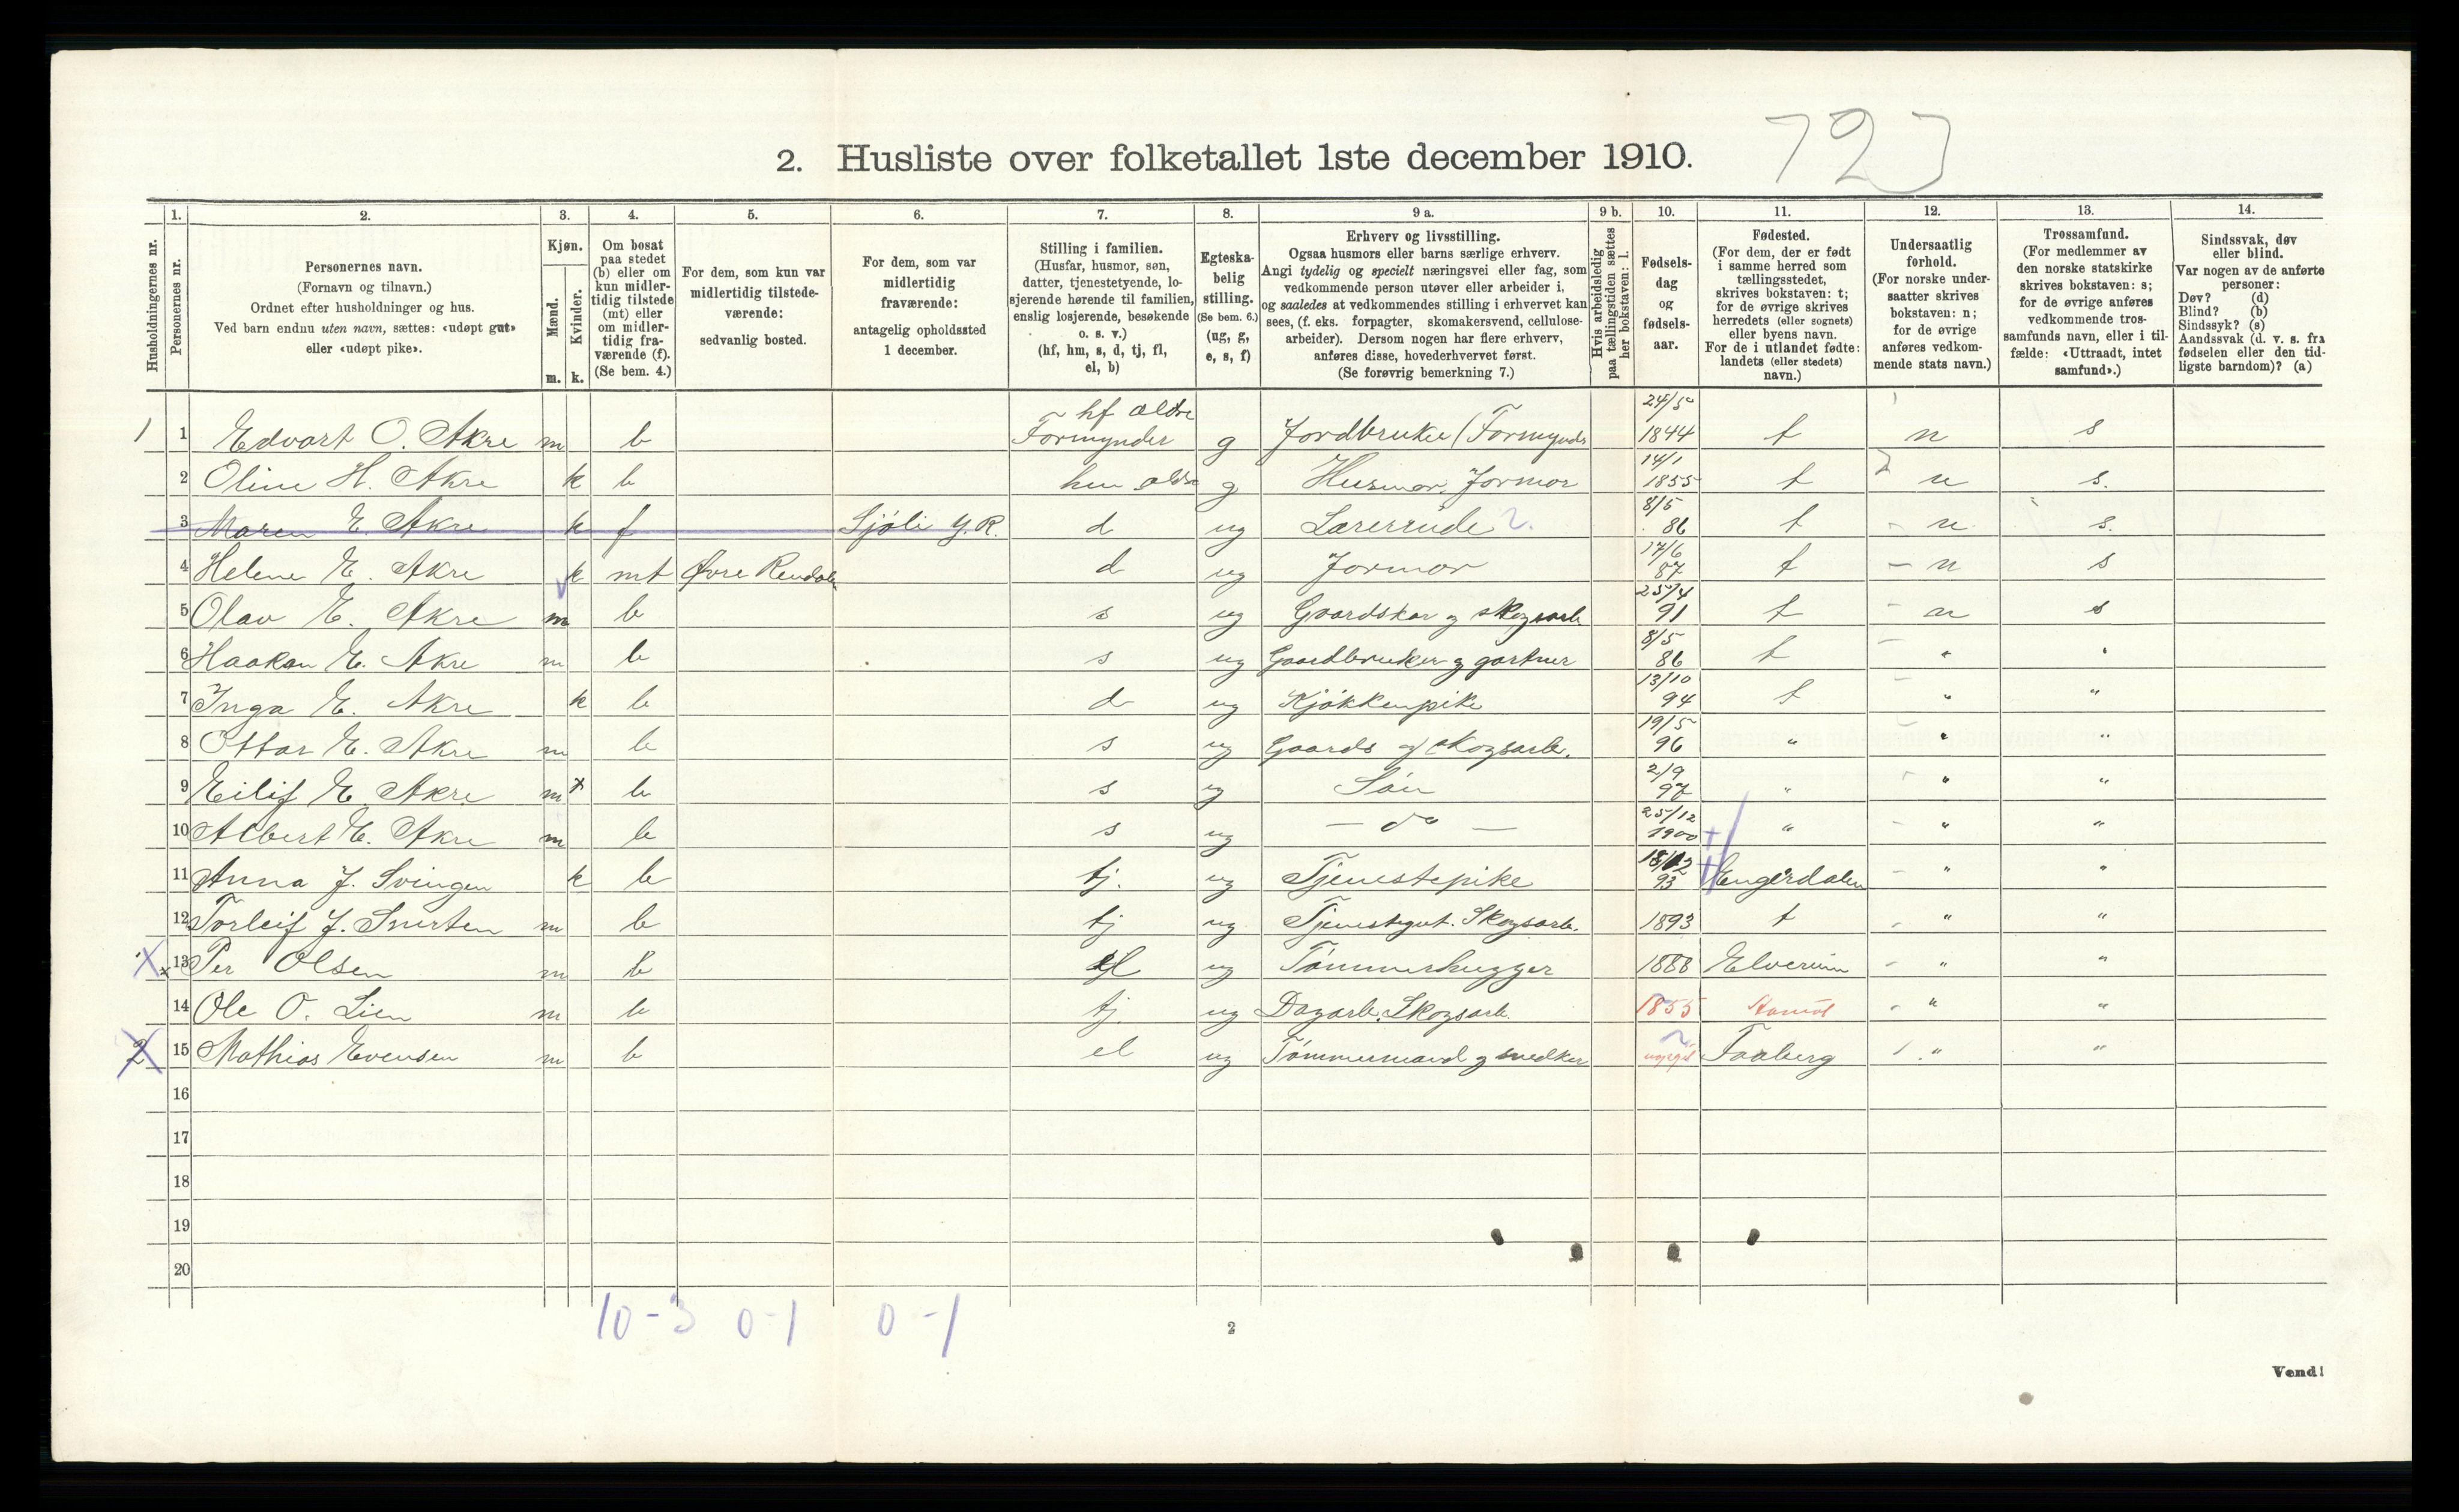 723
2. Husliste over folketallet 1ste december 1910.
1. 2. 3. 4. 5. 6. 7. 8. 9 a. 9 b. 10. 11. 12. 13. 14.
Husholdningernes nr.
Personernes nr.
Personernes navn.
(Fornavn og tilnavn.)
Ordnet efter husholdninger og hus.
Ved barn endnu uten navn, sættes: «udøpt gut»
eller «udøpt pike».
Kjøn.
Mænd.
Kvinder.
m. k.
Om bosat
paa stedet
(b) eller om
kun midler-
tidig tilstede
(mt) eller
om midler-
tidig fra-
værende (f).
(Se bem. 4.)
For dem, som kun var
midlertidig tilstede-
værende:
sedvanlig bosted.
For dem, som var
midlertidig
fraværende:
antagelig opholdssted
1 december.
Stilling i familien.
(Husfar, husmor, søn,
datter, tjenestetyende, lo-
sjerende hørende til familien,
enslig losjerende, besøkende
o. s. v.)
(hf, hm, s, d, tj, fl,
el, b)
Egteska-
belig
stilling.
(Se bem. 6.)
(ug, g,
e, s, f)
Erhverv og livsstilling.
Ogsaa husmors eller barns særlige erhverv.
Angi tydelig og specielt næringsvei eller fag, som
vedkommende person utøver eller arbeider i,
og saaledes at vedkommendes stilling i erhvervet kan
sees, (f. eks. forpagter, skomakersvend, cellulose-
arbeider). Dersom nogen har flere erhverv,
anføres disse, hovederhvervet først.
(Se forøvrig bemerkning 7.)
Hvis arbeidsledig
paa tællingstiden sættes
her bokstaven: l.
Fødsels-
dag
og
fødsels-
aar.
Fødested.
(For dem, der er født
i samme herred som
tællingsstedet,
skrives bokstaven: t;
for de øvrige skrives
herredets (eller sognets)
eller byens navn.
For de i utlandet fødte:
landets (eller stedets)
navn.)
Undersaatlig
forhold.
(For norske under-
saatter skrives
bokstaven: n;
for de øvrige
anføres vedkom-
mende stats navn.)
Trossamfund.
(For medlemmer av
den norske statskirke
skrives bokstaven: s;
for de øvrige anføres
vedkommende tros-
samfunds navn, eller i til-
fælde: «Uttraadt, intet
samfund».)
Sindssvak, døv
eller blind.
Var nogen av de anførte
personer:
Døv? (d)
Blind? (b)
Sindssyk? (s)
Aandssvak (d. v. s. fra
fødselen eller den tid-
ligste barndom)? (a)
1 1 Edvart O. Akre m b hf ældre Formynder g Jordbruker (Formynder 1844 t n s
2 Oline H. Akre k b hm ældre g Husmor, Jormor 14/1 1855 t n s.
3 Maren E. Akre k f Sjøli Y. R. d ug Lærerinde 8/5 86 t n s.
4 Helene E. Akre k mt Øvre Rendalen d ug Jormor 17/6 87 t n s
5 Olav E. Akre m b s ug Gaardskar og skogsarb 25/4 91 t n s
6 Haakon E. Akre m b s ug Gaardbruker og gartner 8/5 86 t " "
7 Inga E. Akre k b d ug Kjøkkenpike 13/10 94 t " "
8 Ottar E. Akre m b s ug Gaards og skogsarb. 19/5 96 " " "
9 Eilif E. Akre m b s ug Søn 2/9 97 " " "
10 Albert E. Akre m b s ug - do - 25/12 1900 " " "
11 Anna J. Svingen k b tj. ug Tjenestepike 18/12 93 Engerdalen " "
12 Torleif J. Snerten m b tj ug Tjenestegut. Skogsarb. 1893 t " "
x 13 Per Olsen m b el ug Tømmerhugger 1888 Elverum " "
14 Ole O. Lien m b tj. ug Dagarb. Skogsarb. 1855 Aamot " "
2 15 Mathias Evensen m b el ug Tømmermand og snedker Faaberg " "
16
17
18
19
20
10-3 0-1 0-1
2
Vend!